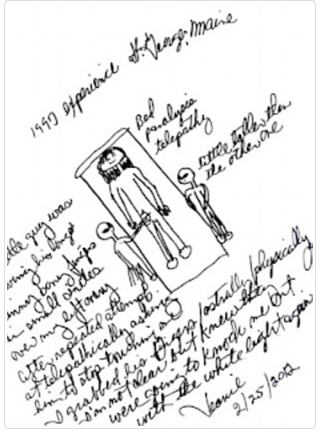 1997 experience St. George, Maine
Bed
paralysis
telepathy
little taller than
the other one
guy was
his long
skinny bony fingers
in small circles
over my left arm
After repeated attempts
at telepathically asking
him to stop touching me
I grabbed his fingers (astrally/physically
I'm not clear but knew they
were going to knock me out
with the white light again
2/25/2012